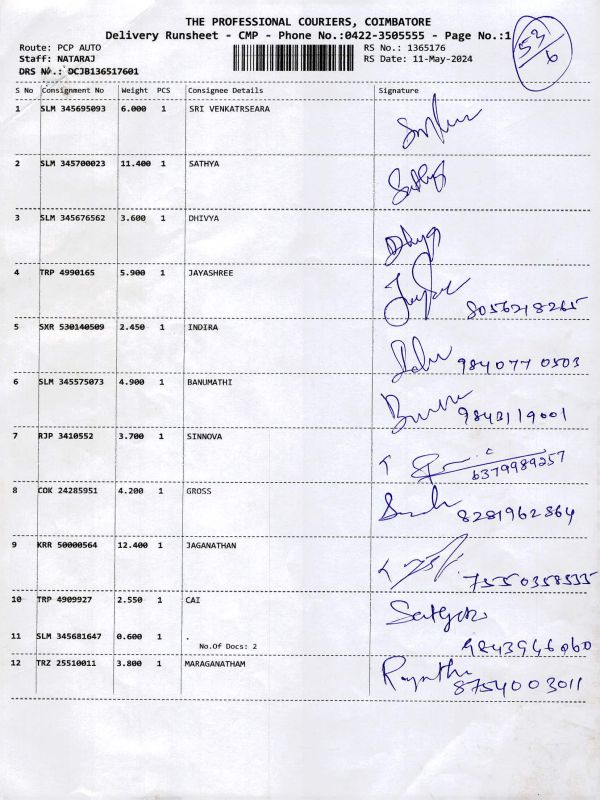 THE PROFESSIONAL COURIERS, COIMBATORE
Delivery Runsheet - CMP - Phone No.:0422-3505555 - Page No.:1
53/6
Route: PCP AUTO
RS No.: 1365176
Staff: NATARAJ
RS Date: 11-May-2024
DRS No.: DCJB136517601
S No Consignment No Weight PCS Consignee Details Signature
1 SLM 345695093 6.000 1 SRI VENKATRSEARA
2 SLM 345700023 11.400 1 SATHYA
3 SLM 345676562 3.600 1 DHIVYA
4 TRP 4990165 5.900 1 JAYASHREE
8056218265
5 SXR 530140509 2.450 1 INDIRA
9840770503
6 SLM 345575073 4.900 1 BANUMATHI
9843119001
7 RJP 3410552 3.700 1 SINNOVA
6379989257
8 COK 24285951 4.200 1 GROSS
8281962864
9 KRR 50000564 12.400 1 JAGANATHAN
7550358535
10 TRP 4909927 2.550 1 CAI
11 SLM 345681647 0.600 1 .
No.Of Docs: 2
9843946060
12 TRZ 25510011 3.800 1 MARAGANATHAM
8754003011